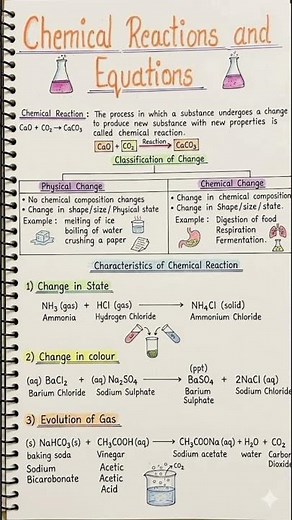 Chemical Reactions and
Equations
Chemical Reaction : The process in which a substance undergoes a change
to produce new substance with new properties is
called chemical reaction.
CaO + CO₂ → CaCO₃
CaO + CO₂ Reaction → CaCO₃
Classification of Change
Physical Change
• No chemical composition changes
• Change in shape/size/Physical state
Example : melting of ice
boiling of water
crushing a paper
Chemical Change
• Change in chemical composition
• Change in Shape/size/state.
Example : Digestion of food
Respiration
Fermentation.
Characteristics of Chemical Reaction
1) Change in State
NH₃ (gas) + HCl (gas) → NH₄Cl (solid)
Ammonia Hydrogen Chloride Ammonium Chloride
2) Change in colour
(ppt)
(aq) BaCl₂ + (aq) Na₂SO₄ → BaSO₄ + 2NaCl (aq)
Barium Chloride Sodium Sulphate Barium Sulphate Sodium Chloride
3) Evolution of Gas
(s) NaHCO₃(s) + CH₃COOH(aq) → CH₃COONa(aq) + H₂O + CO₂
baking soda Vinegar Sodium acetate water Carbon Dioxide
Sodium Bicarbonate Acetic Acetic Acid
CO₂